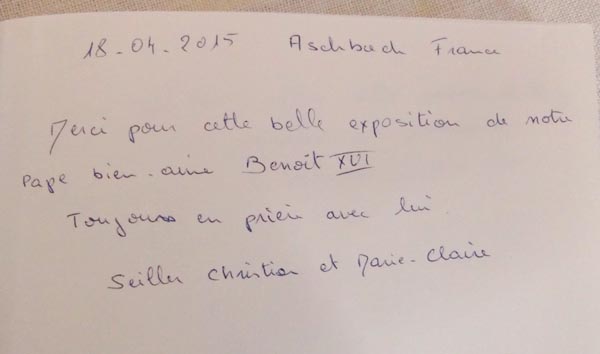 18-04-2015 Aschbach France
Merci pour cette belle exposition de notre
Pape bien-aimé Benoît XVI
Toujours en prière avec lui.
Seiller Christian et Marie-Claire